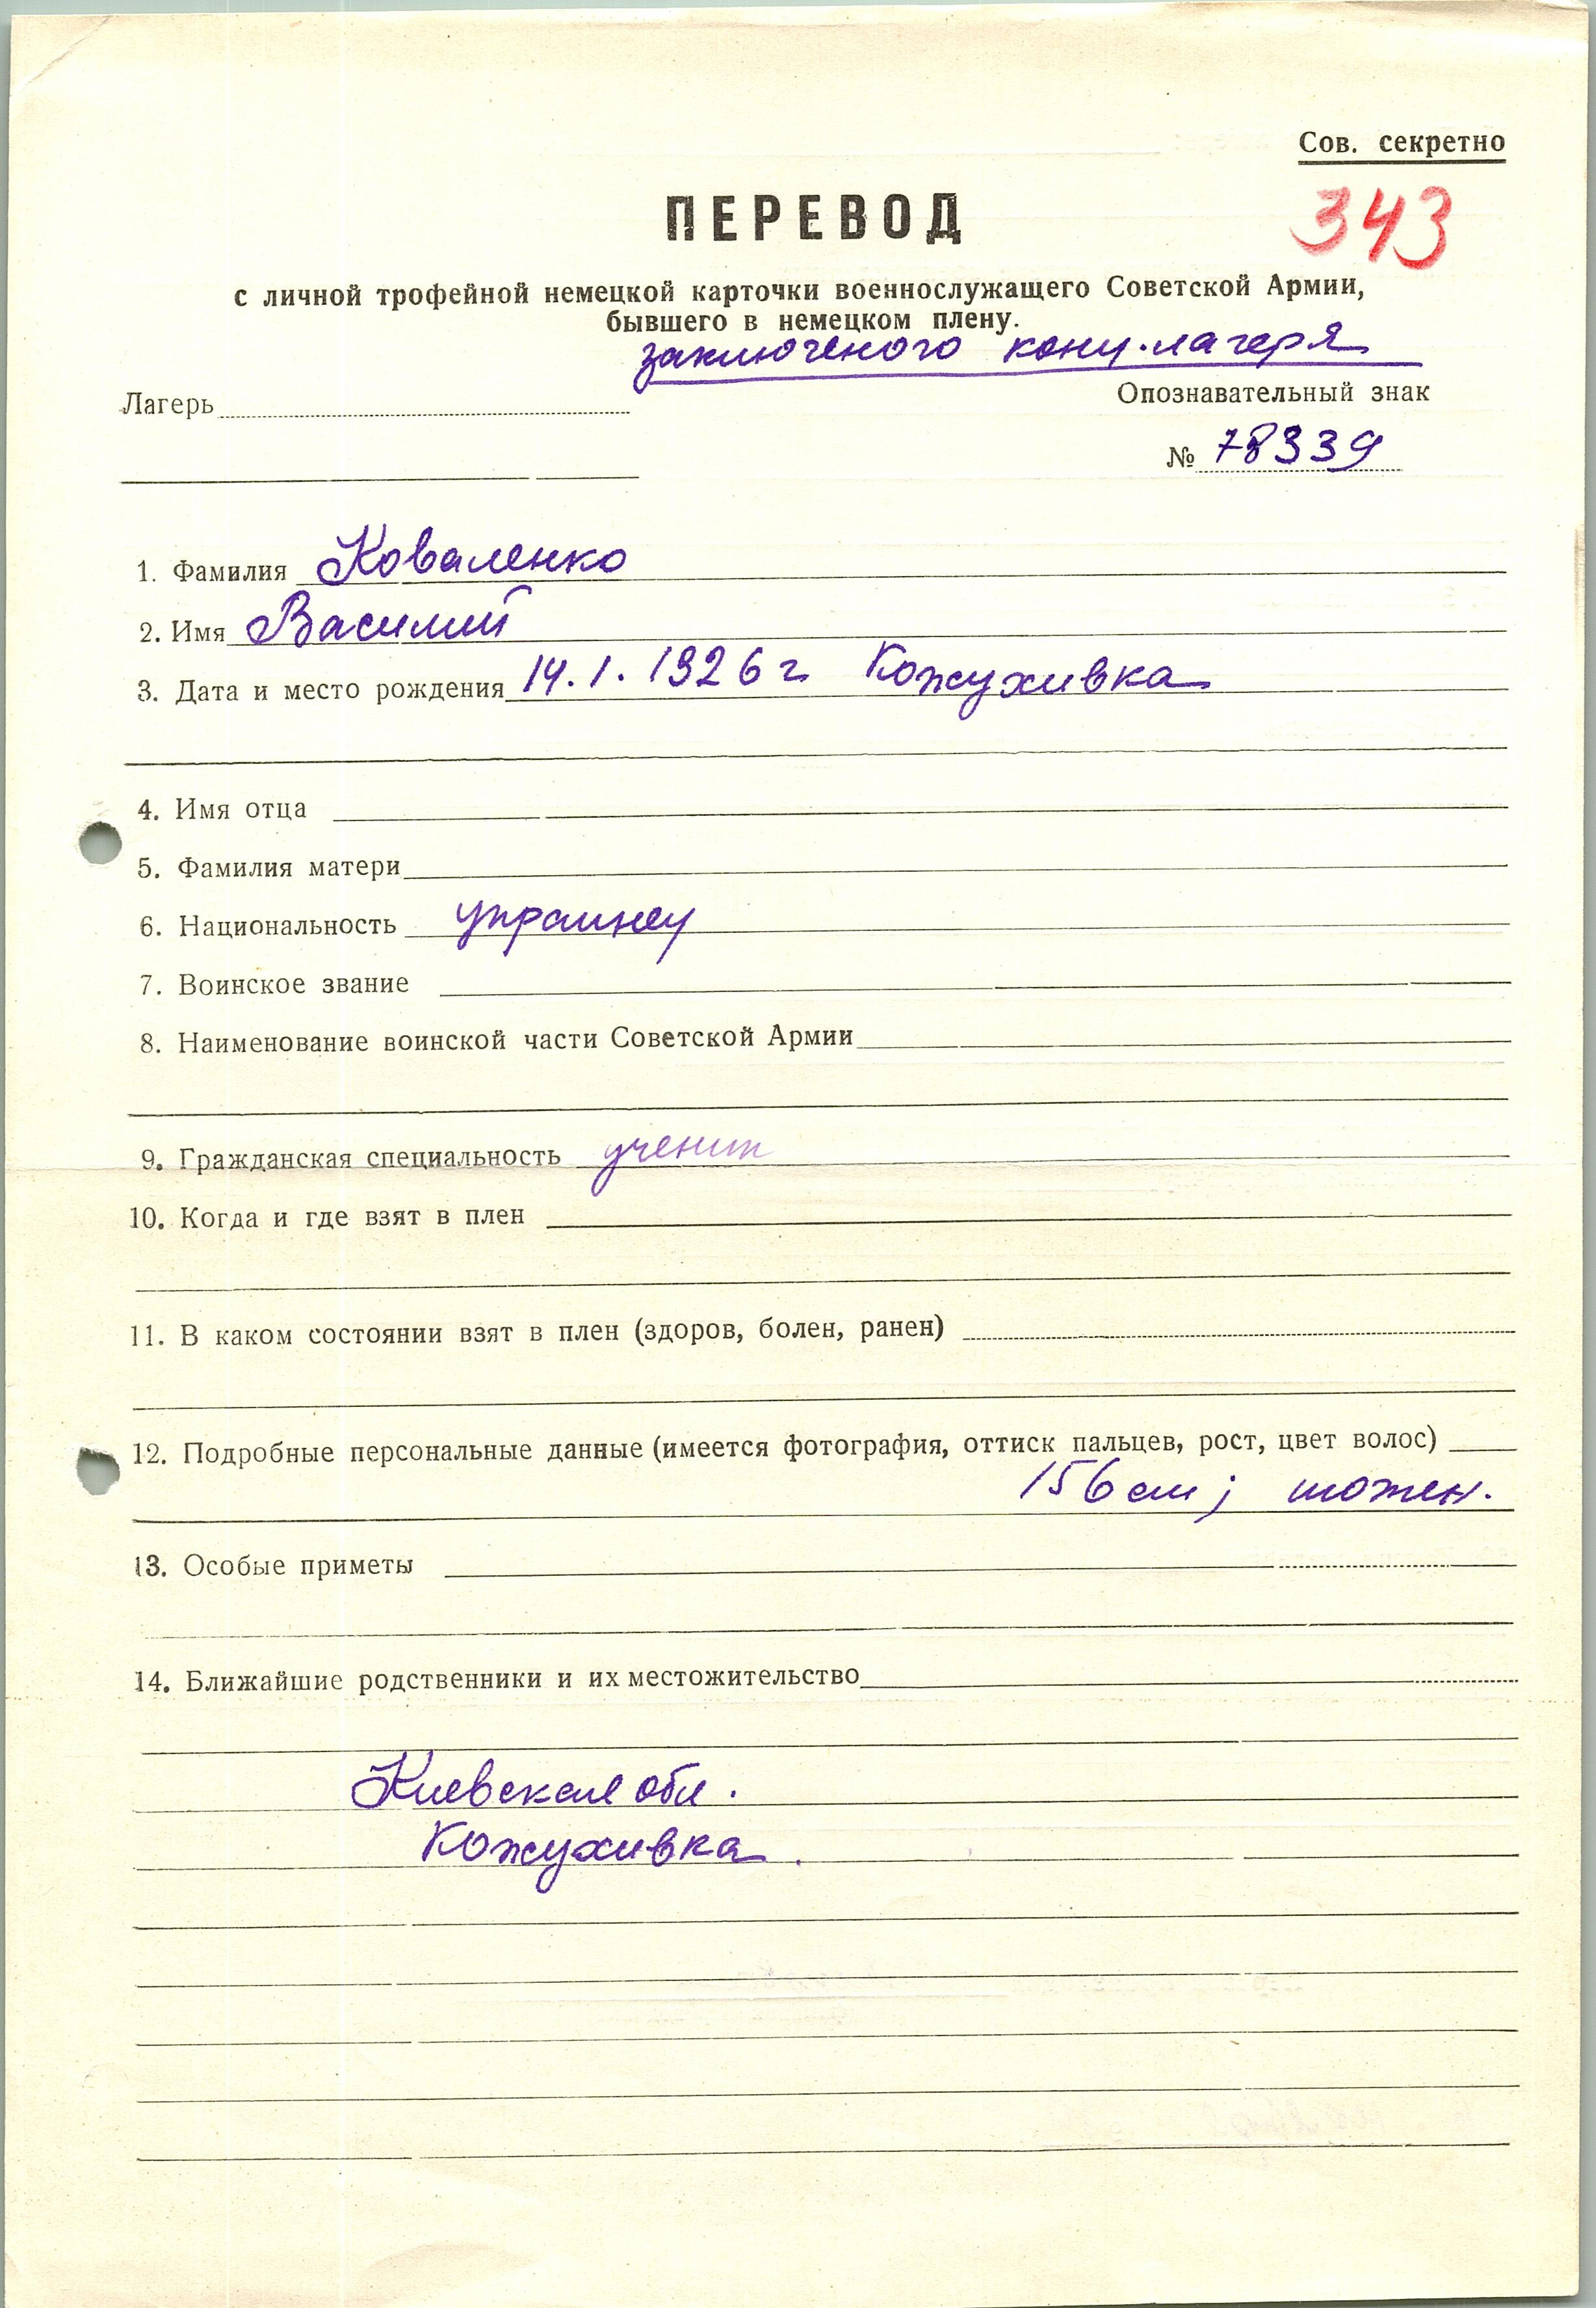 Сов. секретно
ПЕРЕВОД
343
с личной трофейной немецкой карточки военнослужащего Советской Армии,
бывшего в немецком плену.
заключеного конц.лагеря
Лагерь
Опознавательный знак
№ 78339
1. Фамилия Коваленко
2. Имя Василий
3. Дата и место рождения 14.1.1926 г Кожухивка
4. Имя отца
5. Фамилия матери
6. Национальность украинец
7. Воинское звание
8. Наименование воинской части Советской Армии
9. Гражданская специальность ученик
10. Когда и где взят в плен
11. В каком состоянии взят в плен (здоров, болен, ранен)
12. Подробные персональные данные (имеется фотография, оттиск пальцев, рост, цвет волос)
156 см;
13. Особые приметы
14. Ближайшие родственники и их местожительство
Киевская обл.
Кожухивка.